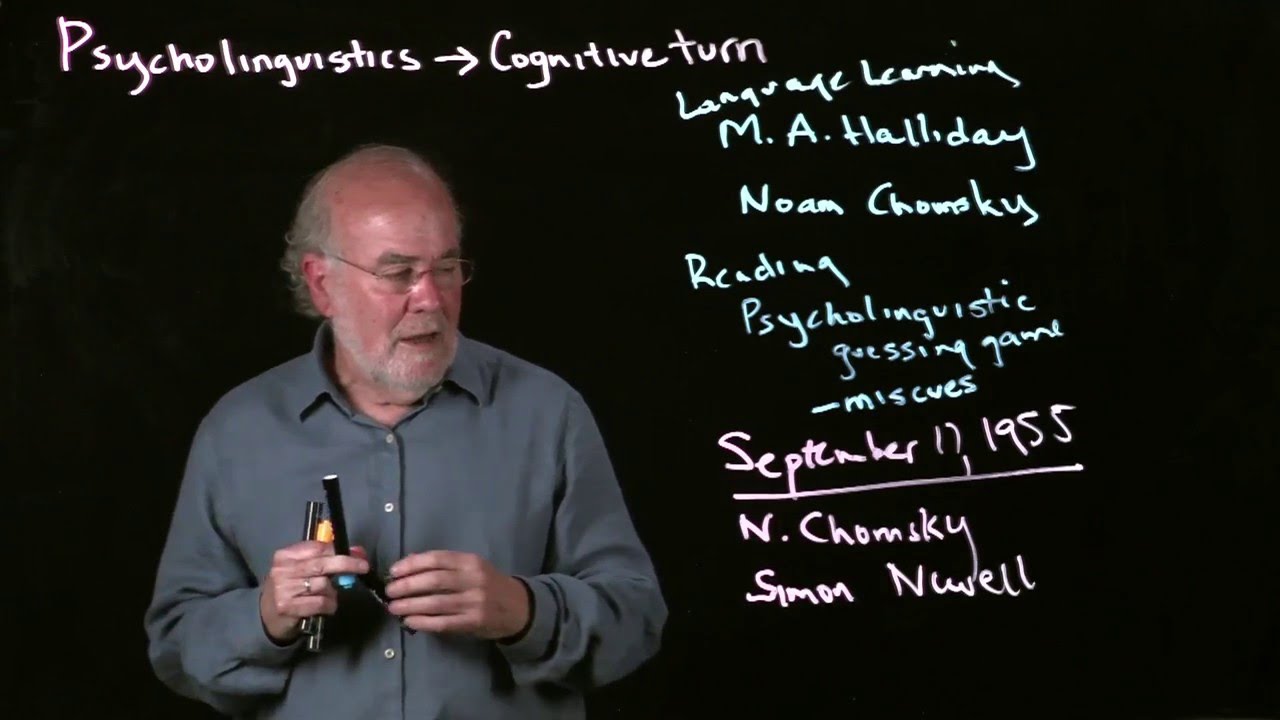 Psycholinguistics → Cognitive turn
Language Learning
M. A. Halliday
Noam Chomsky
Reading
Psycholinguistic
guessing game
- miscues
September 11, 1955
N. Chomsky
Simon Newell